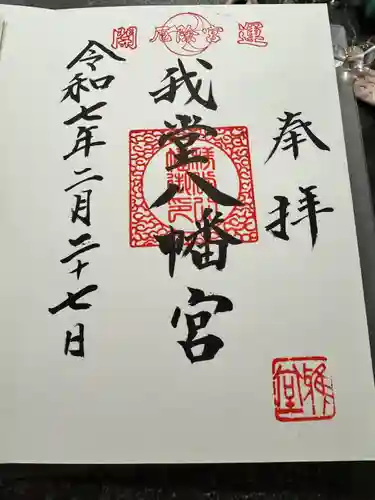 開厄除宮運
奉拝
我堂八幡宮
令和七年二月二十七日
雅堂